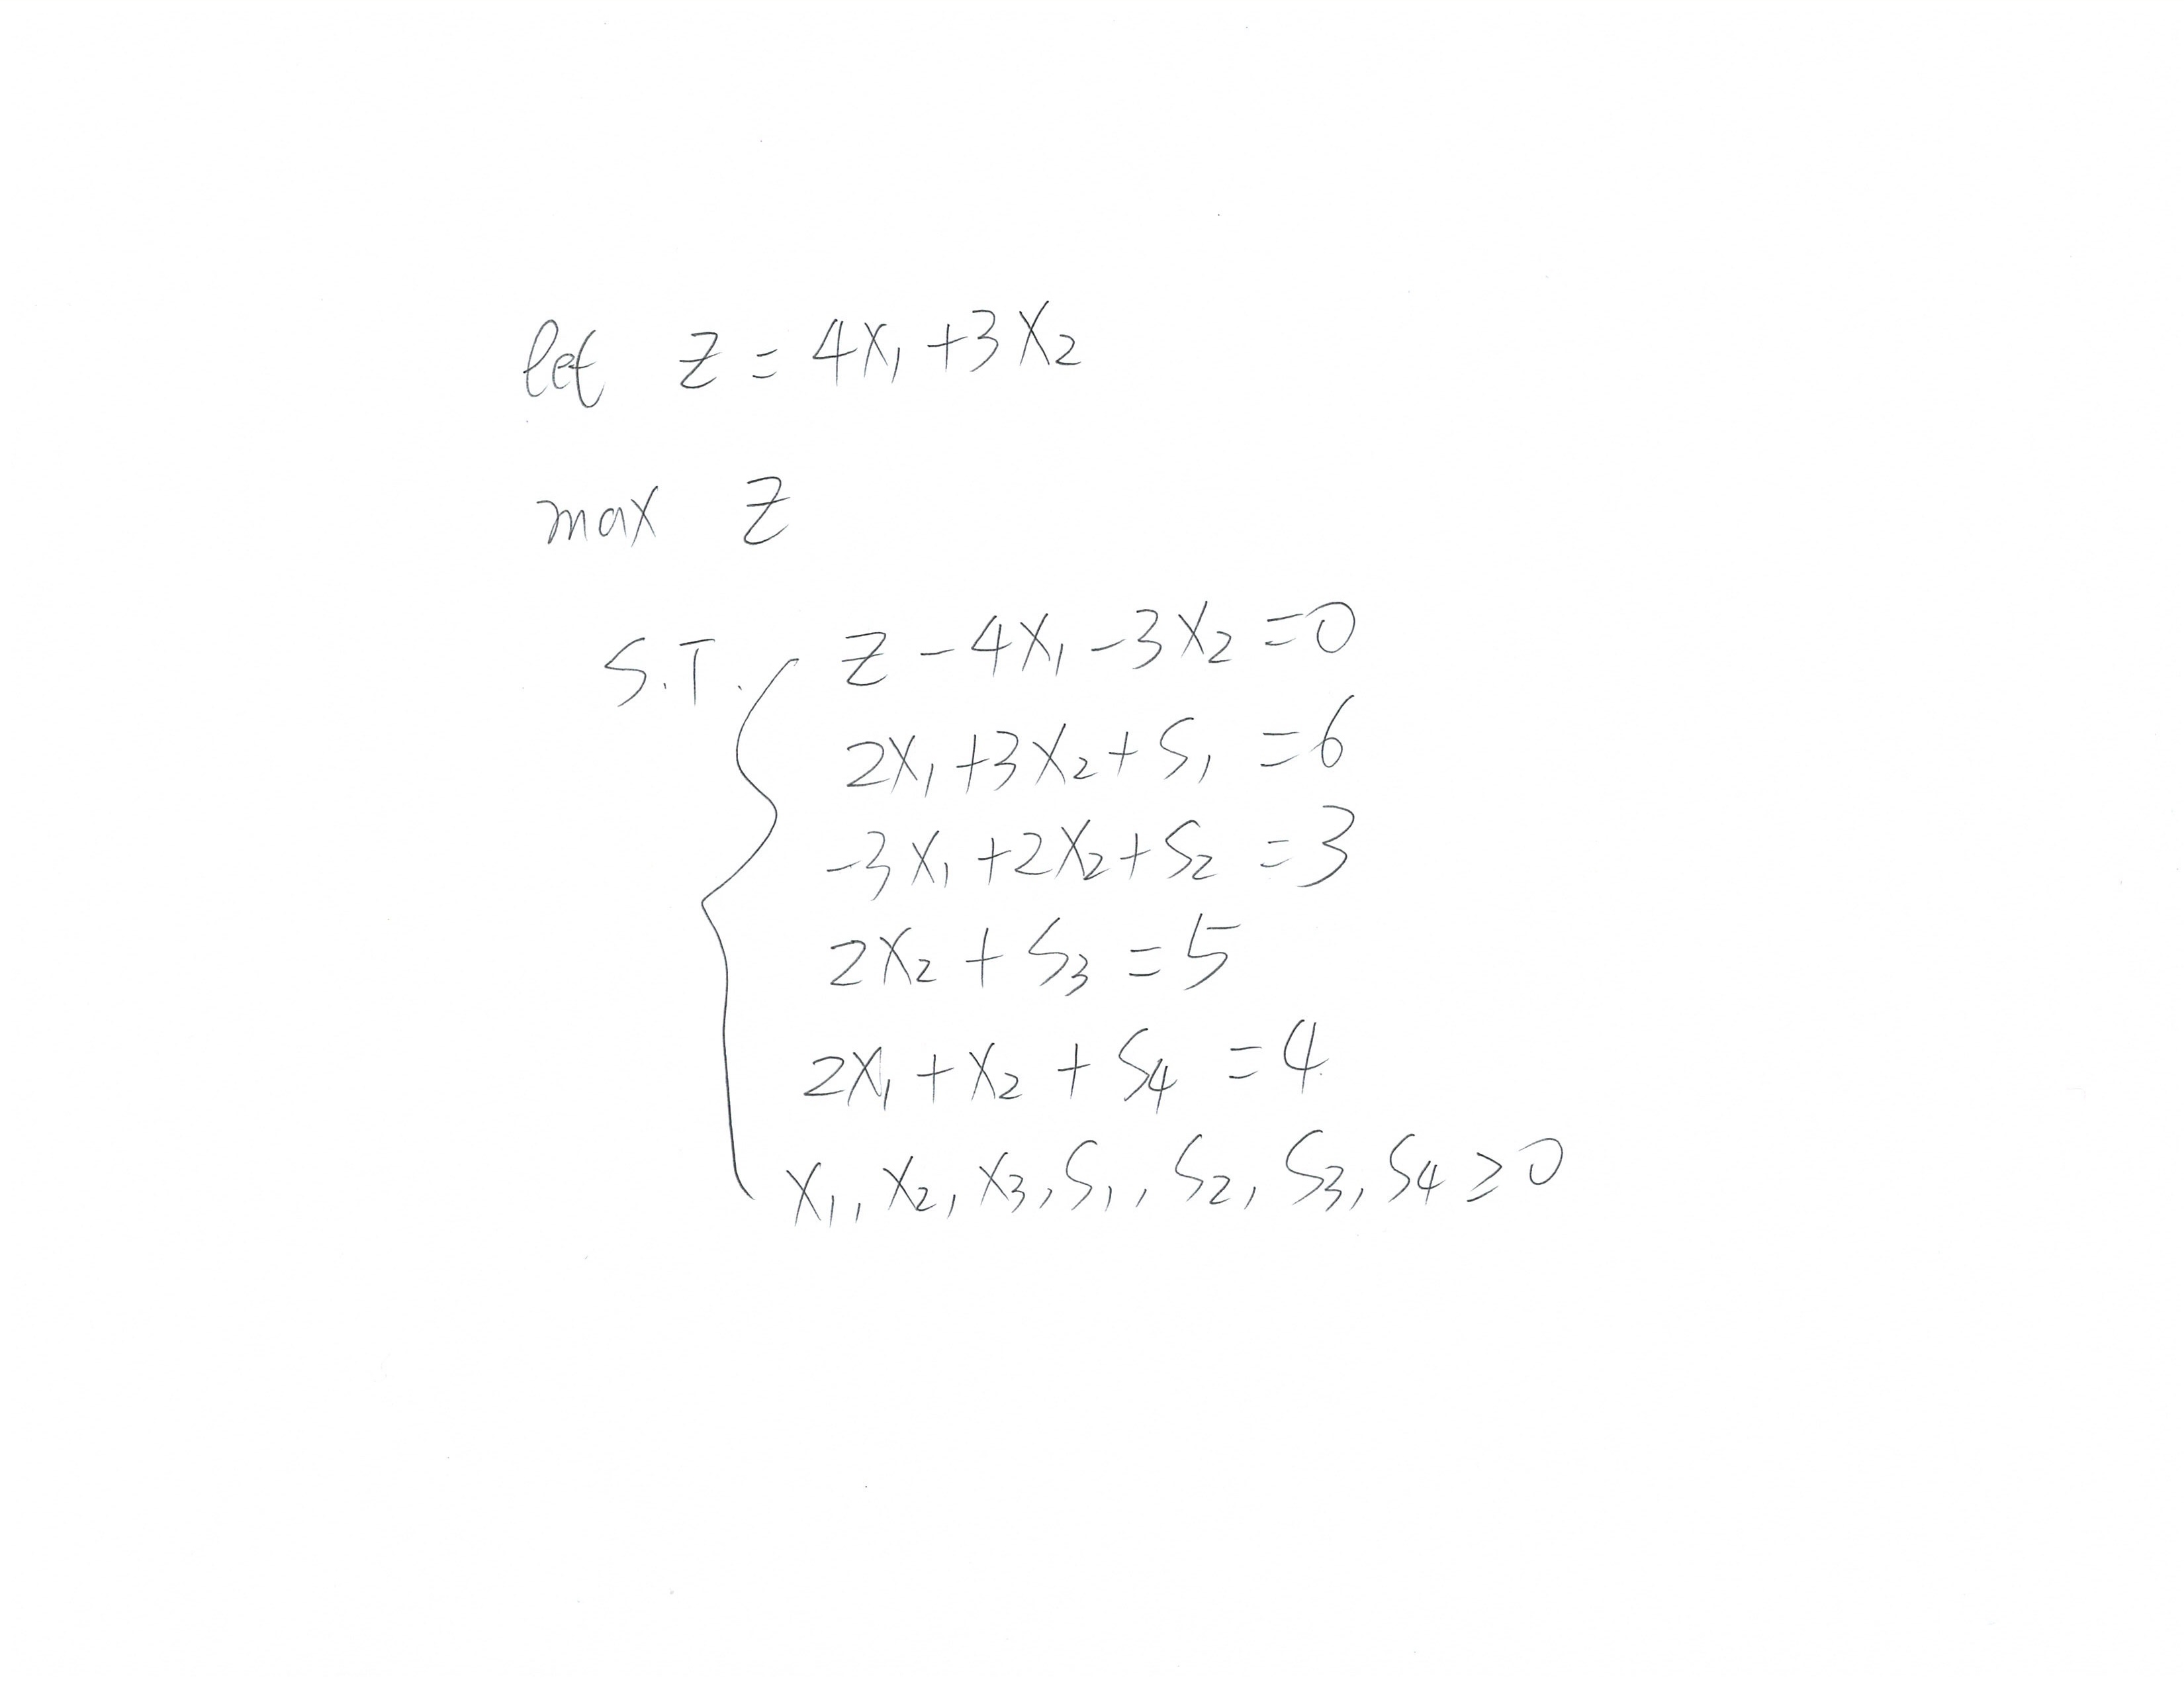 let z = 4x₁ + 3x₂
max z
S.T. z - 4x₁ - 3x₂ = 0
2x₁ + 3x₂ + s₁ = 6
-3x₁ + 2x₂ + s₂ = 3
2x₂ + s₃ = 5
2x₁ + x₂ + s₄ = 4
x₁, x₂, x₃, s₁, s₂, s₃, s₄ ≥ 0